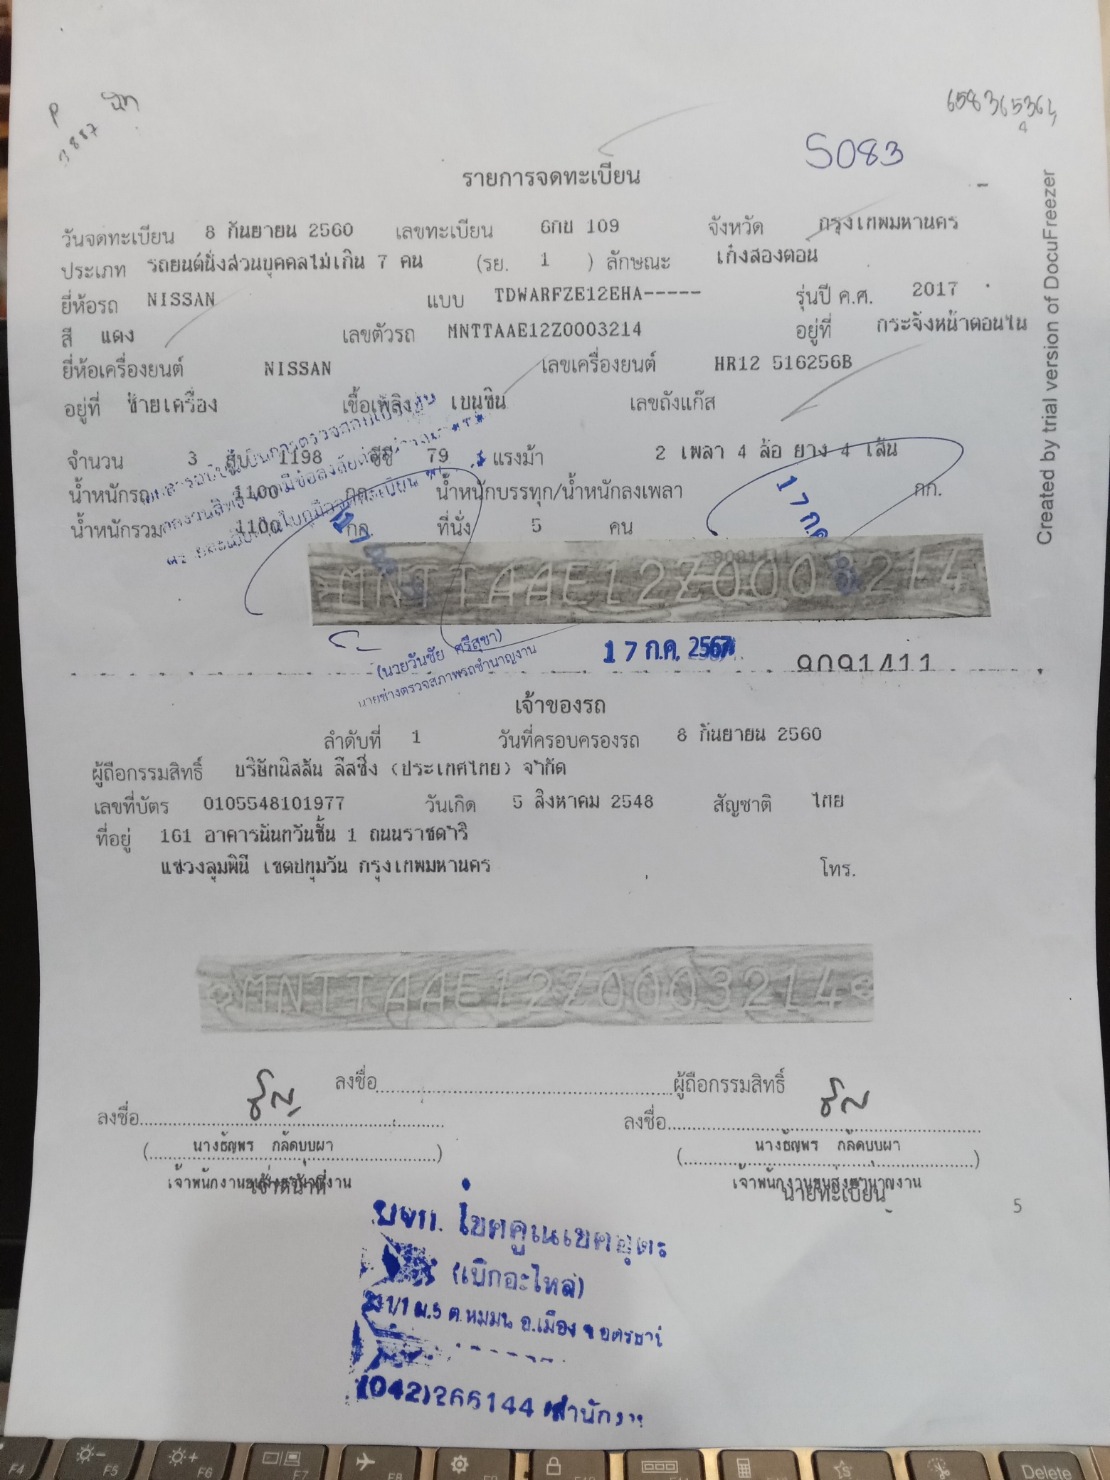 S083
รายการจดทะเบียน
วันจดทะเบียน 8 กันยายน 2560 เลขทะเบียน 6กย 109 จังหวัด กรุงเทพมหานคร
ประเภท รถยนต์นั่งส่วนบุคคลไม่เกิน 7 คน (รย. 1 ) ลักษณะ เก๋งสองตอน
ยี่ห้อรถ NISSAN แบบ TDWARFZE12EHA----- รุ่นปี ค.ศ. 2017
สี แดง เลขตัวรถ MNTTAAE12Z0003214 อยู่ที่ กระจังหน้าตอนใน
ยี่ห้อเครื่องยนต์ NISSAN เลขเครื่องยนต์ HR12 516256B
อยู่ที่ ซ้ายเครื่อง เชื้อเพลิง เบนซิน เลขถังแก๊ส
จำนวน 3 สูบ 1198 ซีซี 79 แรงม้า 2 เพลา 4 ล้อ ยาง 4 เส้น
น้ำหนักรถ 1100 กก. น้ำหนักบรรทุก/น้ำหนักลงเพลา กก.
น้ำหนักรวม 1100 กก. ที่นั่ง 5 คน
17 ก.ค.
MNTTAAE12Z0003214
(นายวันชัย ศรีสุขา)
นายช่างตรวจสภาพรถชำนาญงาน
17 ก.ค. 2567
9091411
เจ้าของรถ
ลำดับที่ 1 วันที่ครอบครองรถ 8 กันยายน 2560
ผู้ถือกรรมสิทธิ์ บริษัทนิสสัน ลีสซิ่ง (ประเทศไทย) จำกัด
เลขที่บัตร 0105548101977 วันเกิด 5 สิงหาคม 2548 สัญชาติ ไทย
ที่อยู่ 161 อาคารนันทวันชั้น 1 ถนนราชดำริ
แขวงลุมพินี เขตปทุมวัน กรุงเทพมหานคร โทร.
MNTTAAE12Z0003214
ลงชื่อ ผู้ถือกรรมสิทธิ์
ลงชื่อ ลงชื่อ
(นางธัญพร กลัดบุบผา) (นางธัญพร กลัดบุบผา)
เจ้าพนักงานขนส่งชำนาญงาน เจ้าพนักงานขนส่งชำนาญงาน
เจ้าหน้าที่ นายทะเบียน
5
(เบิกอะไหล่)
ม.5 ต.หมูม่น อ.เมือง จ.อุดรธานี
(042)266144 สำนักงาน
Created by trial version of DocuFreezer
F4 F5 F6 F7 F8 Delete